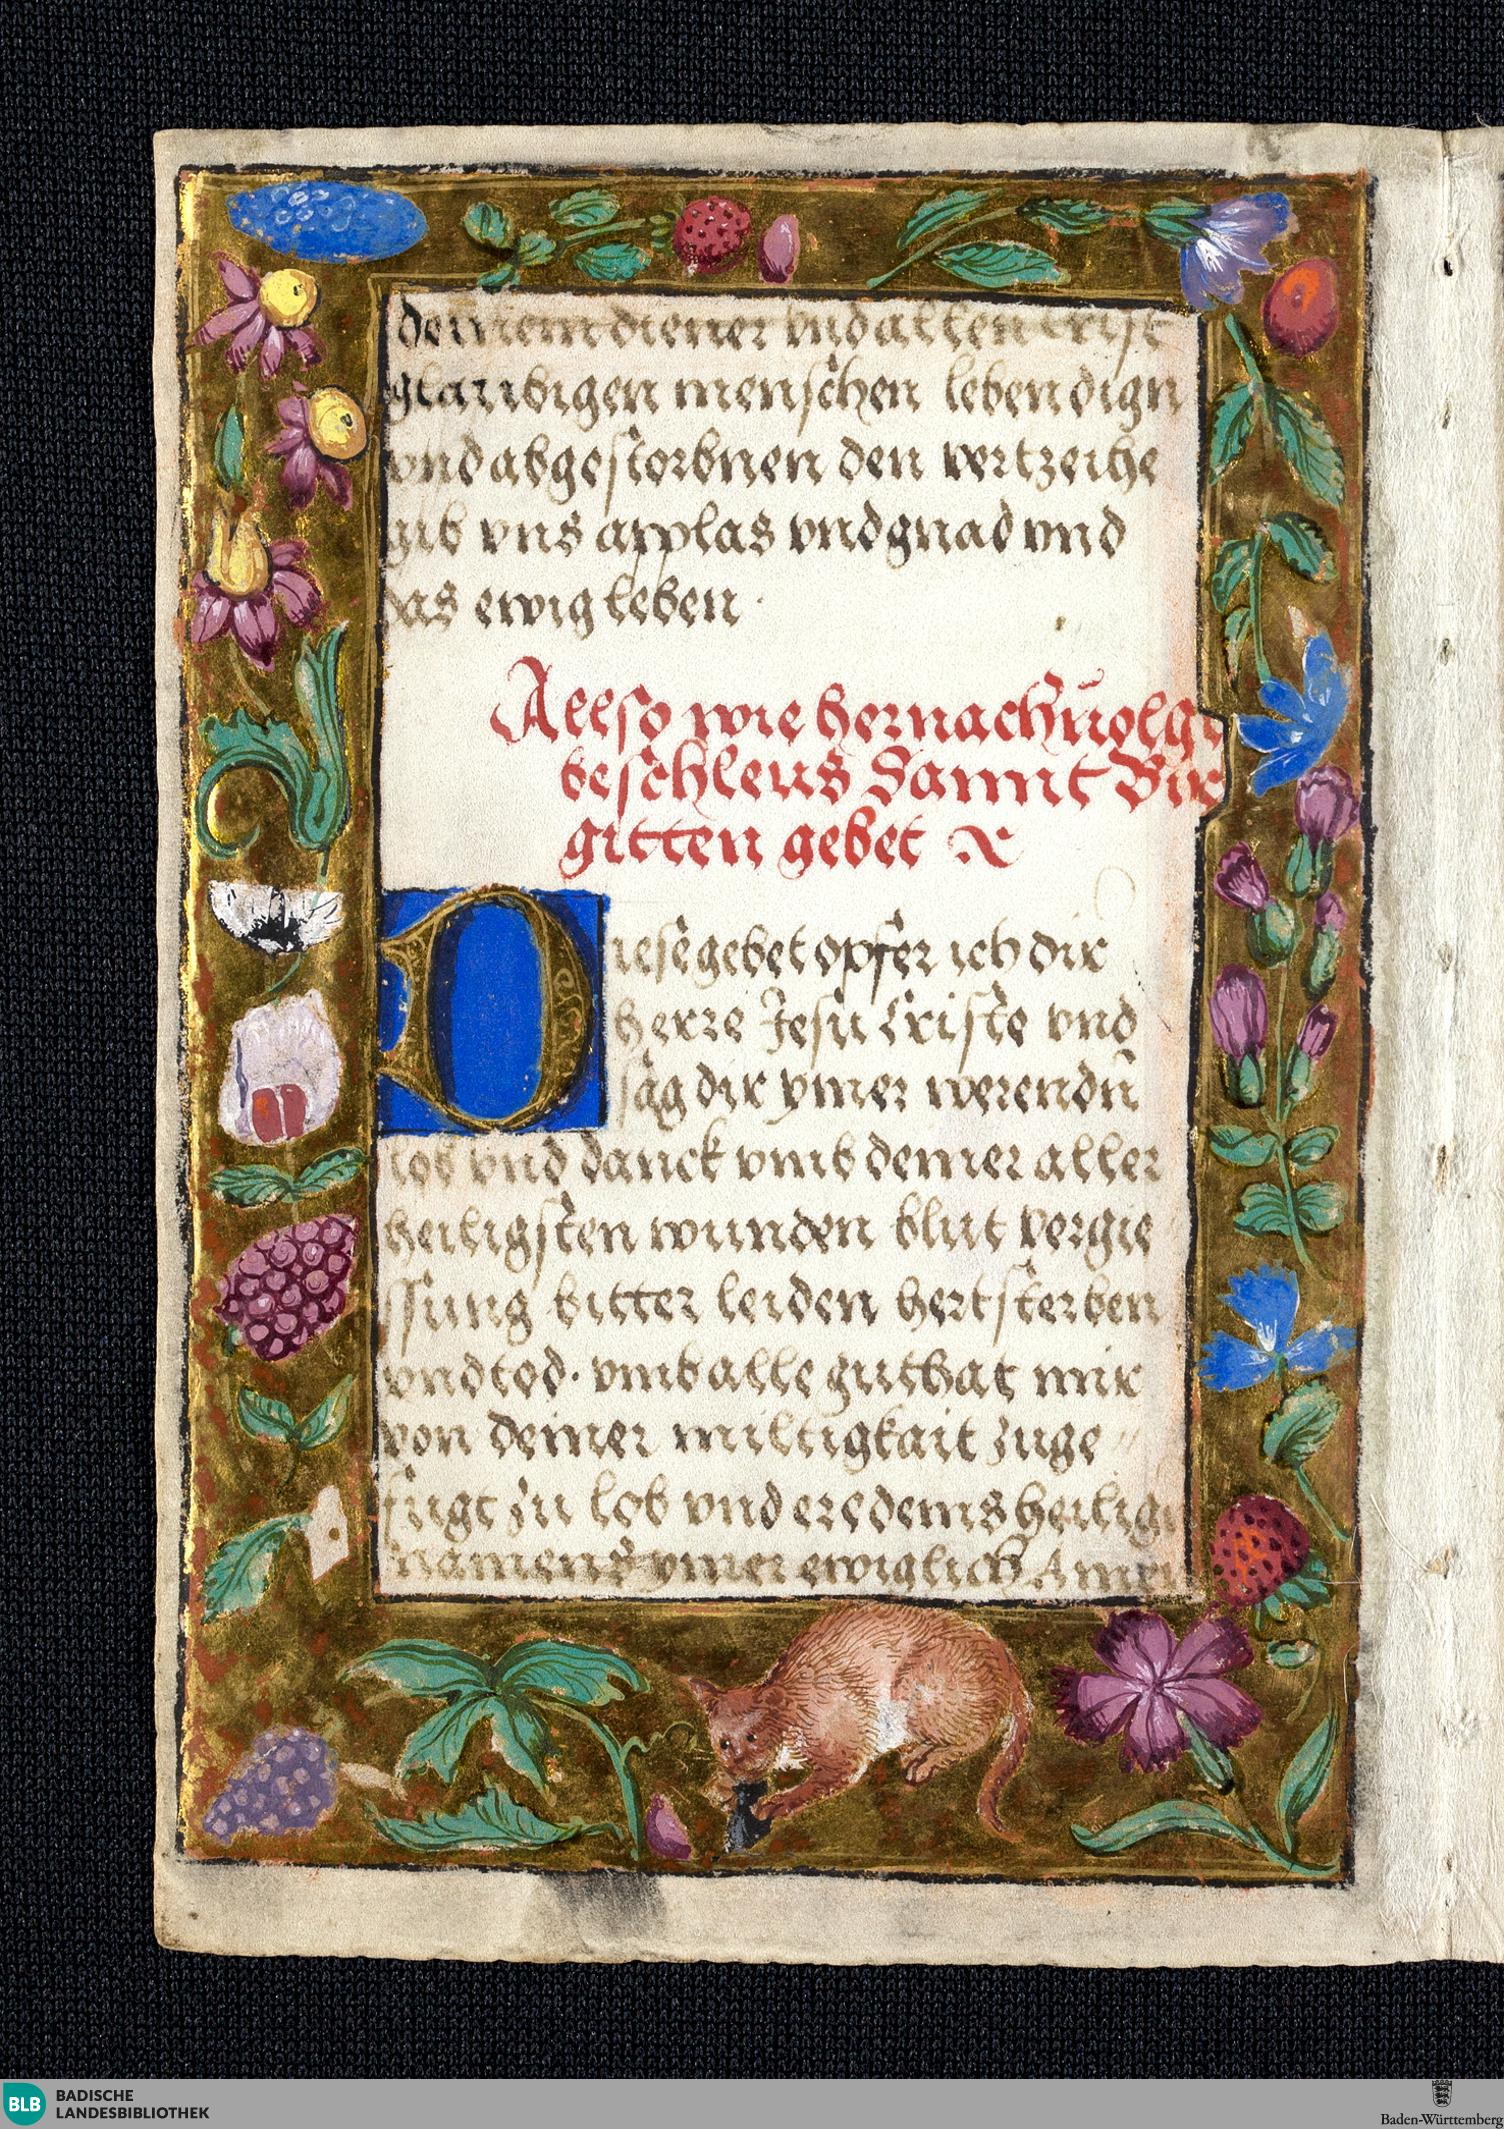 deinem diener vnd allen crist
glaubigen menschen lebendign
vnd abgestorbnen den vertzeihe
gib vns applas vnd gnad vnd
das ewig leben ·
Allso wie hernach uolgt
beschleus Sannt Bir
gitten gebet
Diese gebet opfer ich dir
herre Jesu Criste vnd
sag dir ymer werendn
lob vnd danck vmb deiner aller
heiligsten wunden blut vergie
ssung bitter leiden hertsterben
vnd tod · vmb alle guthat mir
von deiner miltigkait zuge
fugt zu lob vnd ere deins heilign
namens ymer ewiglich Amen
BLB
BADISCHE
LANDESBIBLIOTHEK
Baden-Württemberg